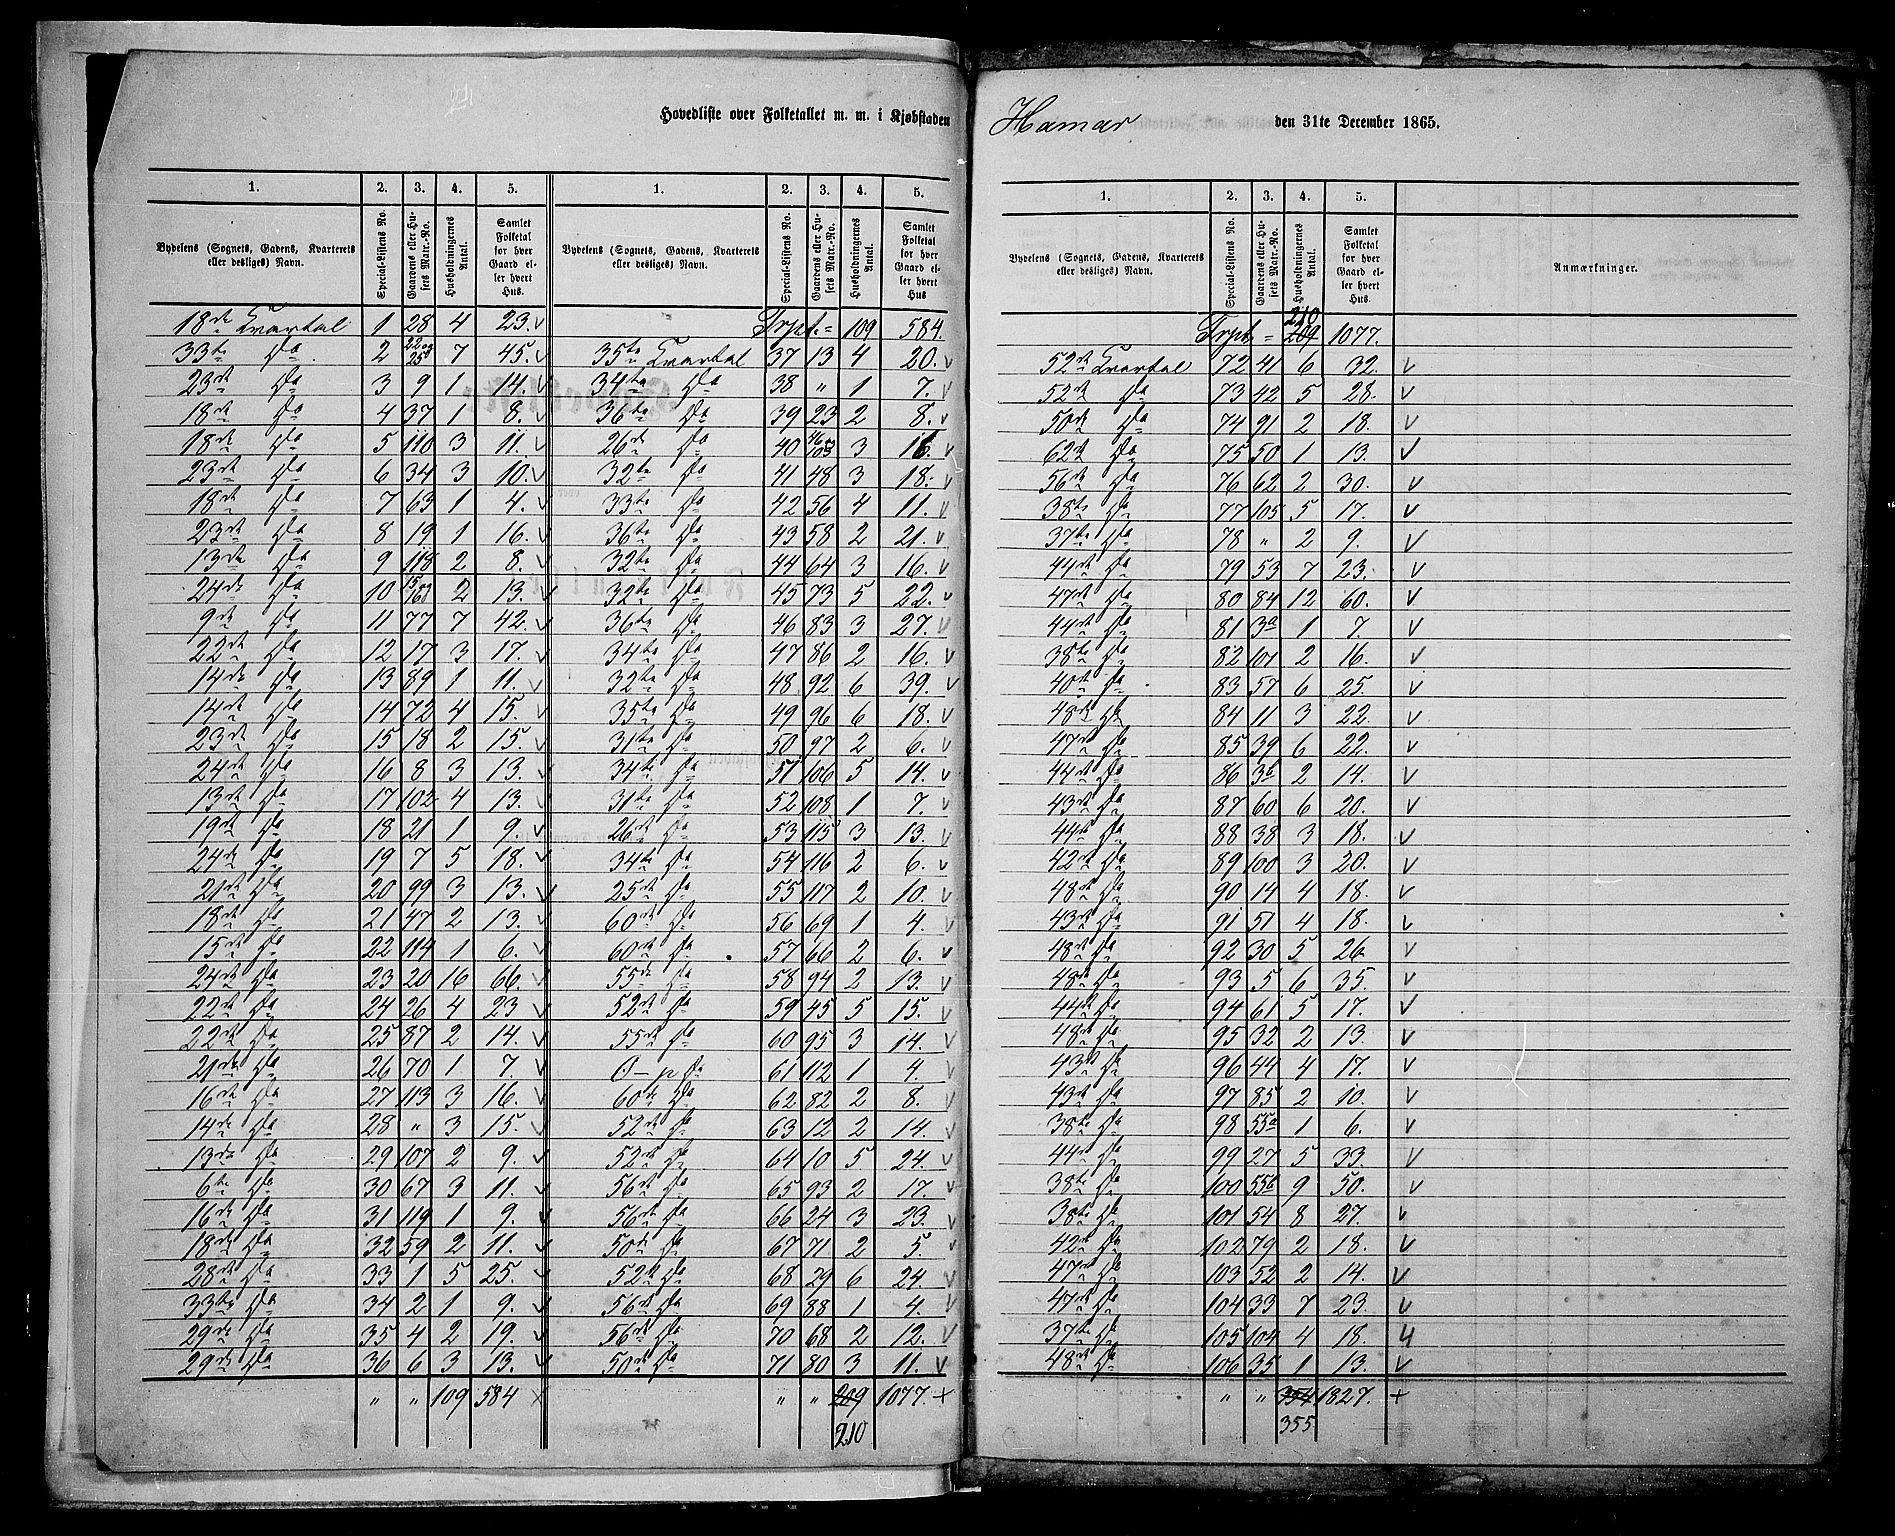 Hovedliste over Folketallet m. m. i Kjøbstaden Hamar den 31te December 1865.
1. 2. 3. 4. 5. 1. 2. 3. 4. 5.
Bydelens (Sognets, Gadens, Kvarterets eller desliges) Navn. Special-Listens No. Gaardens eller Husets Matr.-No. Husholdningernes Antal. Samlet Folketal for hver Gaard eller hvert Hus.
18de Kvartal 1 28 4 23.
33te Do 2 22 og 25 7 45.
23de Do 3 9 1 14.
18de Do 4 37 1 8.
18de Do 5 110 3 11.
23de Do 6 34 3 10.
18de Do 7 63 1 4.
23de Do 8 19 1 16.
13de Do 9 118 2 8.
24de Do 10 15 og 16 2 13.
9de Do 11 77 7 42.
22de Do 12 17 3 17.
14de Do 13 89 1 11.
14de Do 14 72 4 15.
23de Do 15 18 2 15.
24de Do 16 8 3 13.
13de Do 17 102 4 13.
19de Do 18 21 1 9.
24de Do 19 7 5 18.
21de Do 20 99 3 13.
18de Do 21 47 2 13.
15de Do 22 114 1 6.
24de Do 23 20 16 66.
22de Do 24 26 4 23
22de Do 25 87 2 14.
21de Do 26 70 1 7.
16de Do 27 113 3 16.
14de Do 28 " 3 15.
13de Do 29 107 2 9.
6te Do 30 67 3 11.
16de Do 31 119 1 9.
18de Do 32 59 2 11.
28de Do 33 1 5 25.
33te Do 34 2 1 9.
29de Do 35 4 2 19.
29de Do 36 6 3 13.
" " 109 584
Bydelens (Sognets, Gadens, Kvarterets eller desliges) Navn. Special-Listens No. Gaardens eller Husets Matr.-No. Husholdningernes Antal. Samlet Folketal for hver Gaard eller hvert Hus
Trpt. = 109 584.
35te Kvartal 37 13 4 20.
34te Do 38 " 1 7.
36te Do 39 23 2 8.
26de Do 40 46 103 3 16.
32te Do 41 48 3 18.
33te Do 42 56 4 11.
36te Do 43 58 2 21.
32te Do 44 64 3 16.
32te Do 45 73 5 22.
36te Do 46 83 3 27.
34te Do 47 86 2 16.
32te Do 48 92 6 39.
35te Do 49 96 6 18.
31te Do 50 97 2 6.
34te Do 51 106 5 14.
31te Do 52 108 1 7.
26de Do 53 115 3 13.
34te Do 54 116 2 6.
25de Do 55 117 2 10.
60de Do 56 69 1 4.
60de Do 57 66 2 6.
55de Do 58 94 2 13.
52de Do 59 45 5 15.
55de Do 60 95 3 14.
Do 61 112 1 4.
60de Do 62 82 2 8.
52de Do 63 12 2 14.
52de Do 64 10 5 24.
56de Do 65 93 2 17.
56de Do 66 24 3 23.
50de Do 67 71 2 5.
52de Do 68 29 6 24.
56de Do 69 88 1 4.
56de Do 70 68 2 12.
50de Do 71 80 3 11.
" " 209 1077. +
210
1. 2. 3. 4. 5.
Bydelens (Sognets, Gadens, Kvarterets eller desliges) Navn. Special-Listens No. Gaardens eller Husets Matr.-No. Husholdningernes Antal. Samlet Folketal for hver Gaard eller hvert Hus. Anmærkninger.
210
Trpt = 209 1077.
52de Kvartal 72 41 6 32.
52de Do 73 42 5 28.
50de Do 74 91 2 18.
62de Do 75 50 1 13.
56de Do 76 62 2 30.
38te Do 77 105 5 17.
37te Do 78 " 2 9.
44de Do 79 53 7 23.
47de Do 80 84 12 60.
44de Do 81 3a 1 7.
38te Do 82 101 2 16.
40de Do 83 57 6 25.
48de Do 84 11 3 22.
47de Do 85 39 6 22.
44de Do 86 3b 2 14.
43de Do 87 60 6 20.
44de Do 88 38 3 18.
42de Do 89 100 3 20.
48de Do 90 14 4 18.
43de Do 91 51 4 18.
48de Do 92 30 5 26.
48de Do 93 5 6 35.
44de Do 94 61 5 17.
48de Do 95 32 2 13.
43de Do 96 44 4 17.
43de Do 97 85 2 10.
38te Do 98 55a 1 6.
44de Do 99 27 5 33.
38te Do 100 55b 9 50.
38te Do 101 54 8 27.
42de Do 102 79 2 18.
47de Do 103 52 2 14.
47de Do 104 33 7 23.
37te Do 105 104 4 18.
48de Do 106 35 1 13.
" " 354 1827. +
355